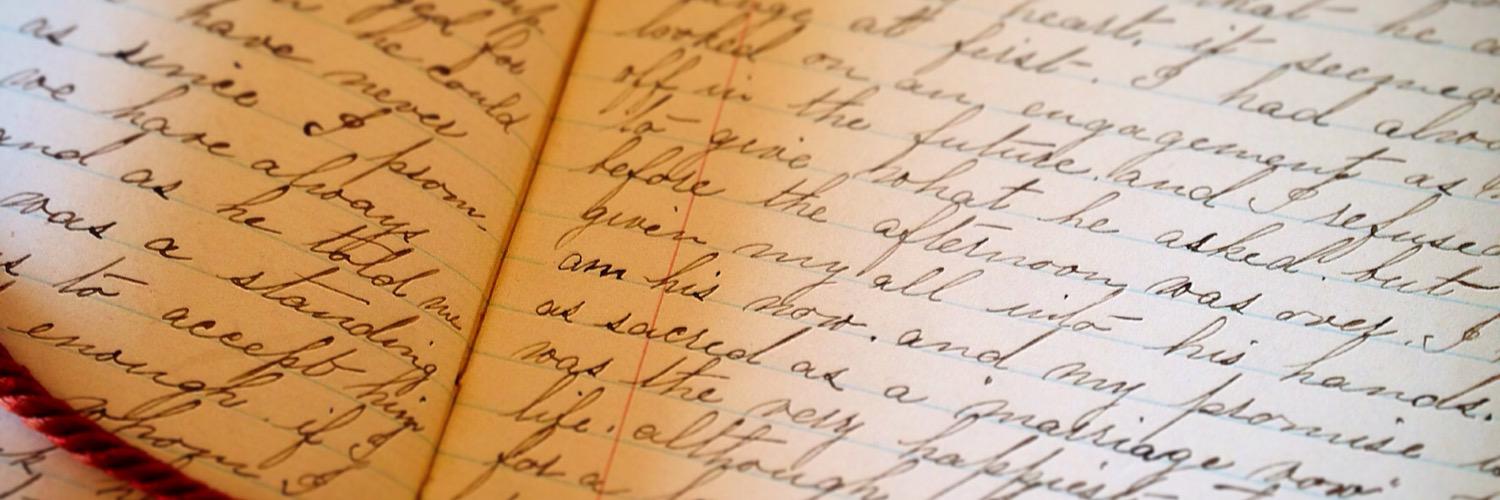 as since I prom-
have never
he could
we have always
and as he told me
was a standing
to accept him
enough. if I
whom I
at heart. it seemed
looked on an engagement as
at first. I had also
off in the future. and I refused
to give what he asked. but
before the afternoon was over. I
given my all into his hands.
am his now. and my promise
as sacred as a marriage vow
was the very happiest
life. although
for a